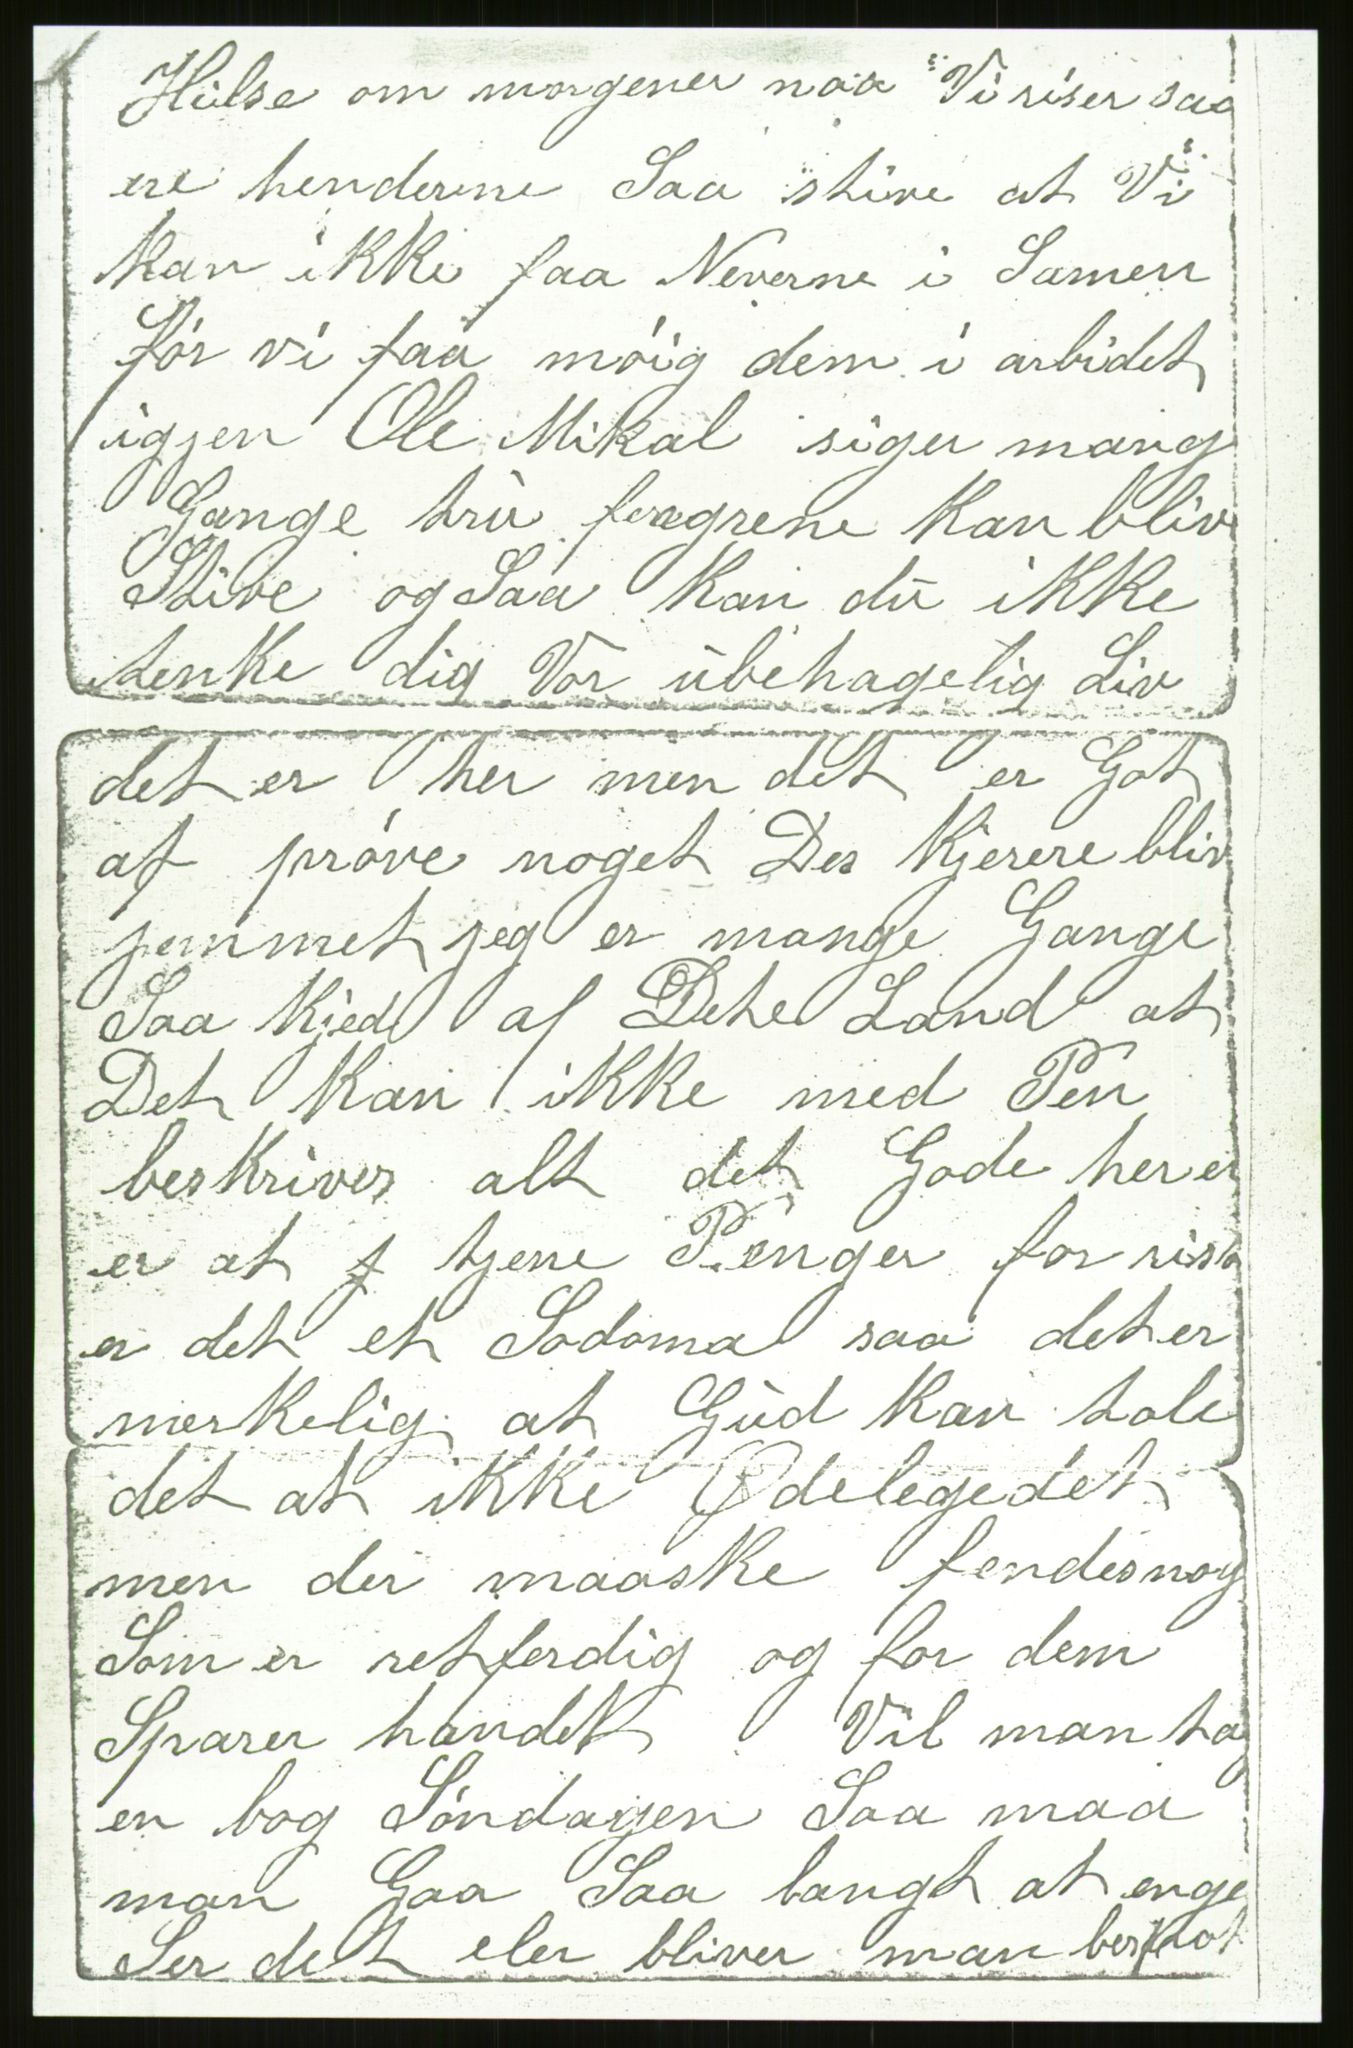 Hilse om morgener naa Vi riser saa
ere henderne Saa stive at Vi
kan ikke faa Neverne i Samen
för vi faa möig dem i arbidet
igjen Ole Mikal siger mang
Gange trú fragrene kan bliv
Stive og Saa kan dú ikke
tenke dig Vor úbehagelig Liv
det er her men det er Got
af pröve noget Des kjerere bliv
jemmet jeg er mange Gange
Saa kjed af Dete Land at
Det kan ikke med Pen
beskrives alt det Gode her er
er at tjene Penger for rist
er det et Sodoma saa det er
merkelig at Gúd kan tole
det at ikke Ödelegedet
men der maaske fendes nog
Som er retferdig og for dem
Sparer handet Vil man ta
en bog Söndagen Saa maa
man Gaa Saa langt at enge
Ser det eler bliver man bespot